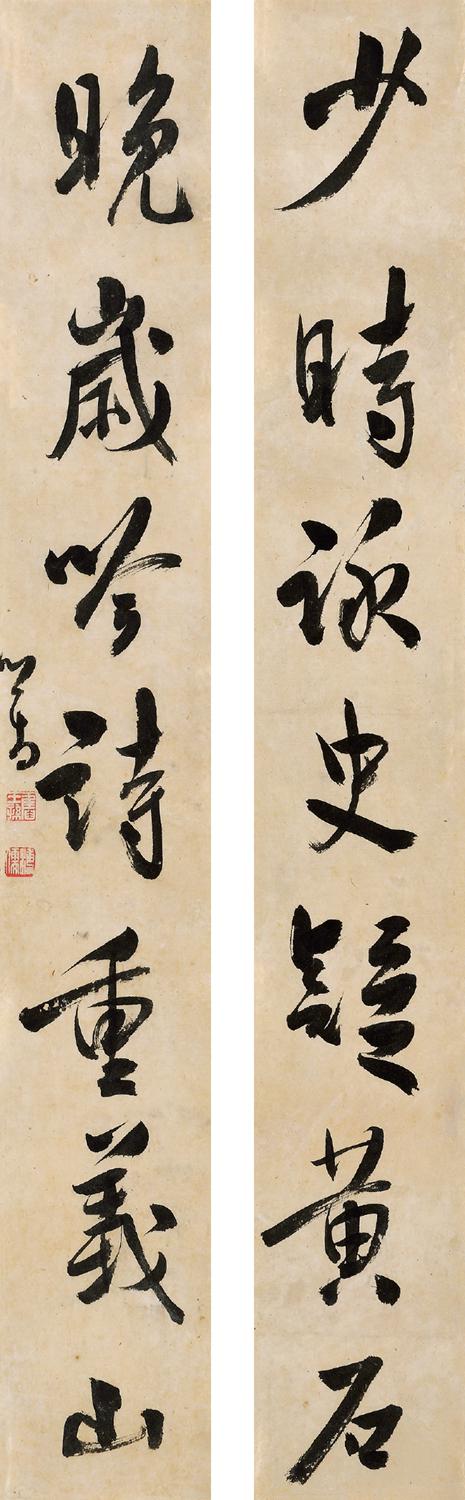 少時詠史疑黃石
晚歲吟詩重義山
心畬